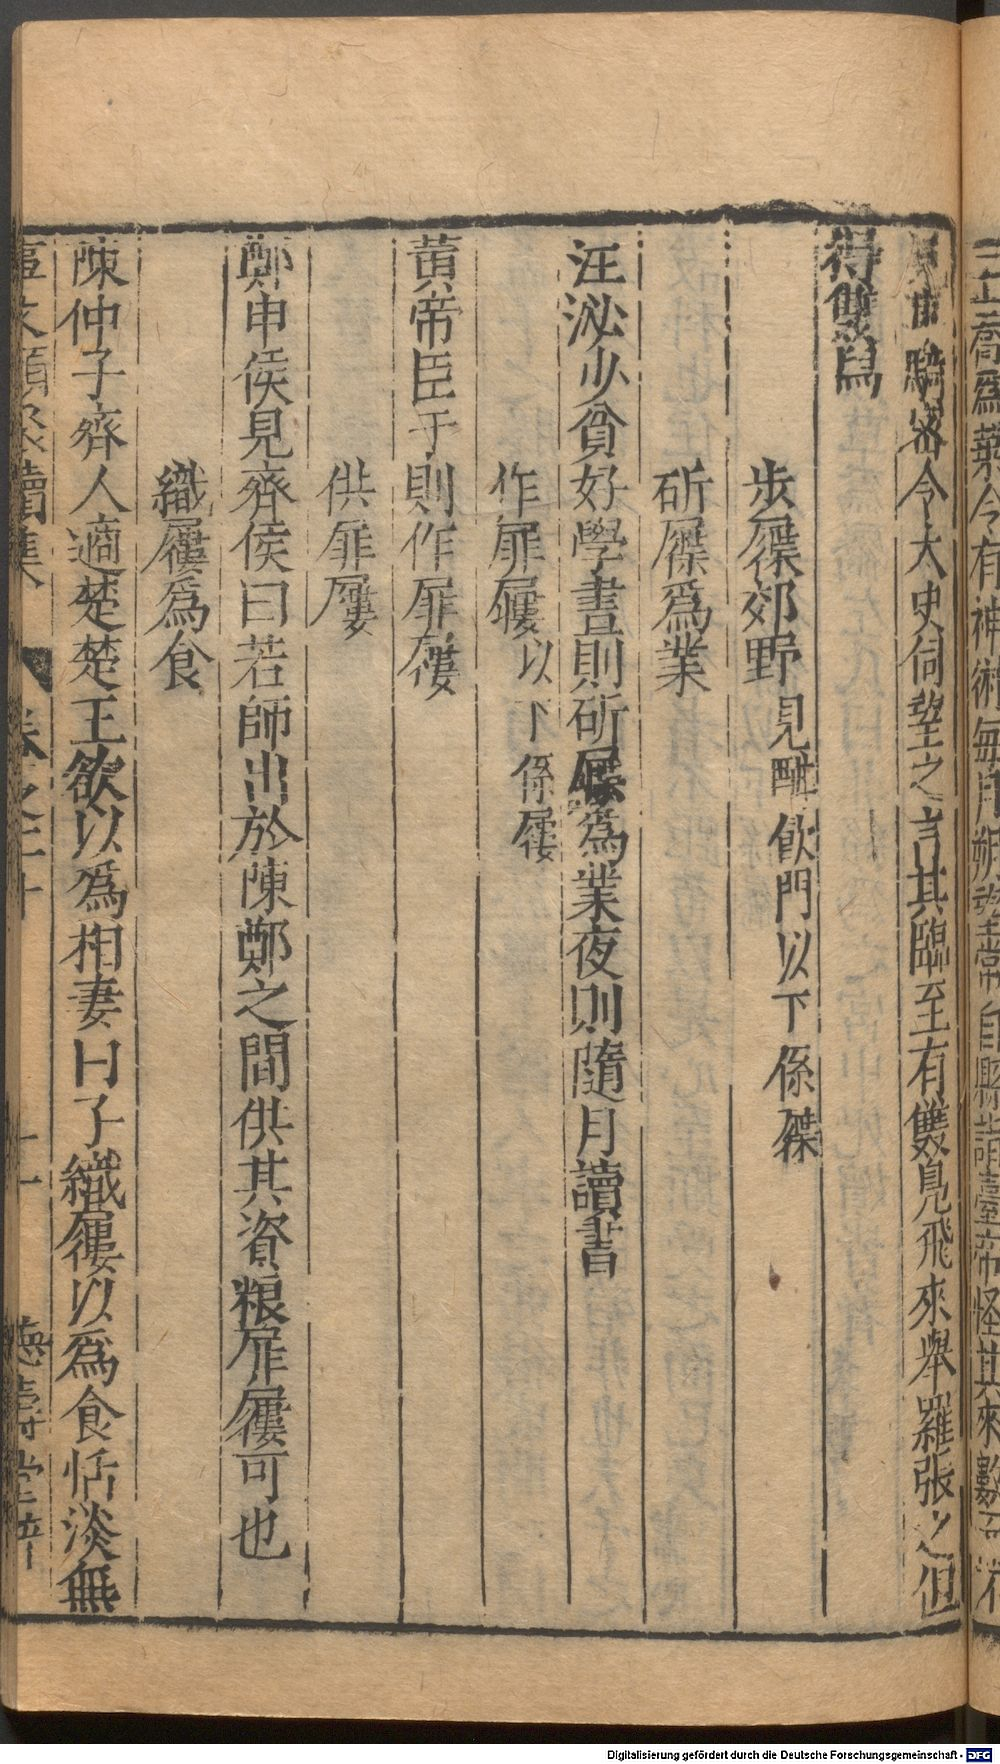 王喬爲葉令有神術每月朔望常自縣詣臺帝怪其來數而不
見車騎密令太史伺望之言其臨至有雙鳧飛來舉羅張之但
得雙舄
步屧郊野見酣飲門以下係屧
斫屧爲業
江泌少貧好學晝則斫屧爲業夜則隨月讀書
作屝屨以下係屨
黃帝臣于則作屝屨
供屝屨
鄭申侯見齊侯曰若師出於陳鄭之間供其資粮屝屨可也
織屨爲食
陳仲子齊人適楚楚王欲以爲相妻曰子織屨以爲食恬淡無
事文類聚續集 卷之二十 十一 德壽堂梓
Digitalisierung gefördert durch die Deutsche Forschungsgemeinschaft - DFG